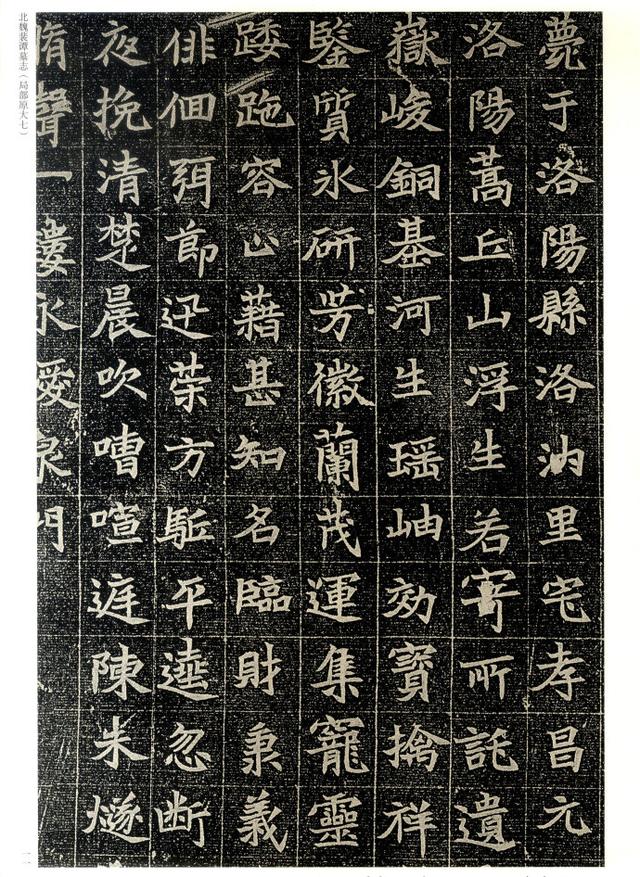 薨于洛陽縣洛汭里宅孝昌元
洛陽蒿丘山浮生若寄所託遺
嶽峻銅基河生瑶岫効寶擒祥
鑒質氷研芳徽蘭茂運集寵靈
踒容止藉甚知名臨財秉義
俳佪弭節迅荣方駈平逵忽断
夜挽清楚晨吹嘈喧陳朱燧
聲一永愛泉門
北魏裴谭墓志（局部原大七）